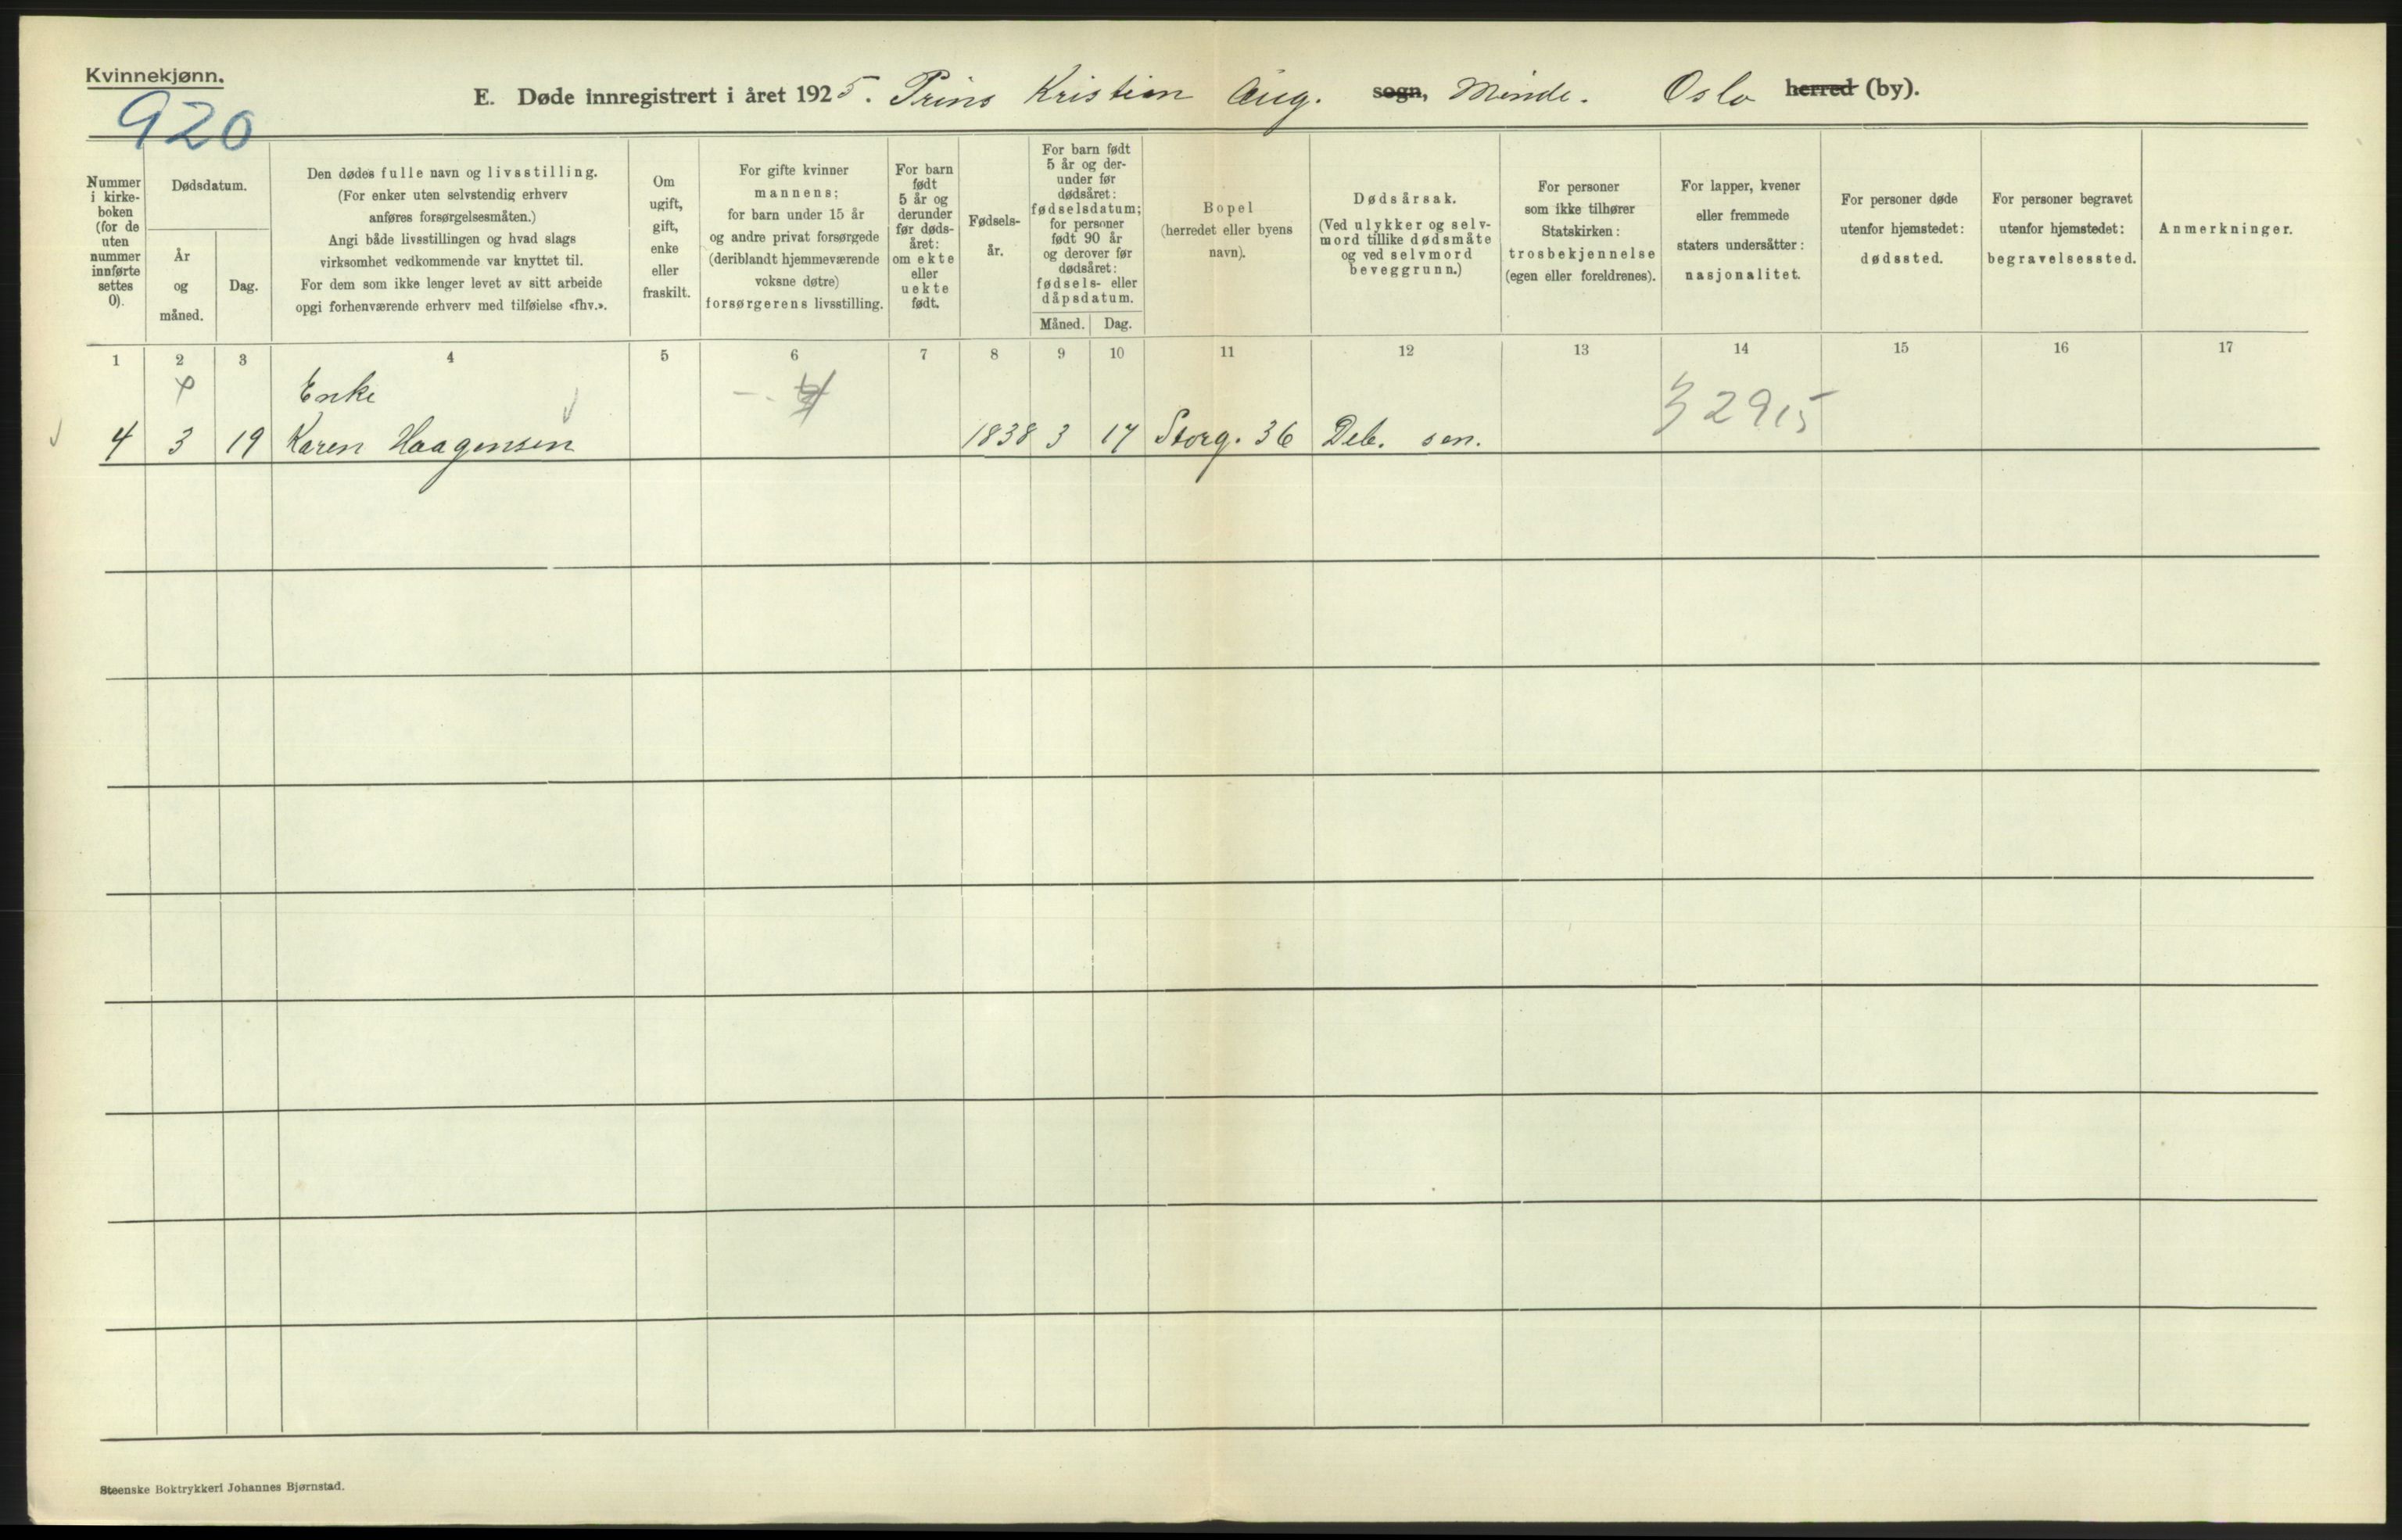 Kvinnekjønn.
920
E. Døde innregistrert i året 1925. Prins Kristian Aug. sogn, Minde. Oslo herred (by).
Nummer i kirke-boken (for de uten nummer innførte settes 0).
Dødsdatum.
År og måned.
Dag.
Den dødes fulle navn og livsstilling.
(For enker uten selvstendig erhverv
anføres forsørgelsesmåten.)
Angi både livsstillingen og hvad slags
virksomhet vedkommende var knyttet til.
For dem som ikke lenger levet av sitt arbeide
opgi forhenværende erhverv med tilføielse «fhv.».
Om
ugift,
gift,
enke
eller
fraskilt.
For gifte kvinner
mannens;
for barn under 15 år
og andre privat forsørgede
(deriblandt hjemmeværende
voksne døtre)
forsørgerens livsstilling.
For barn
født
5 år og
derunder
før døds-
året:
om ekte
eller
uekte
født.
Fødsels-
år.
For barn født
5 år og der-
under før
dødsåret:
fødselsdatum;
for personer
født 90 år
og derover før
dødsåret:
fødsels- eller
dåpsdatum.
Måned. Dag.
Bopel
(herredet eller byens
navn).
Dødsårsak.
(Ved ulykker og selv-
mord tillike dødsmåte
og ved selvmord
beveggrunn.)
For personer
som ikke tilhører
Statskirken:
trosbekjennelse
(egen eller foreldrenes).
For lapper, kvener
eller fremmede
staters undersåtter:
nasjonalitet.
For personer døde
utenfor hjemstedet:
dødssted.
For personer begravet
utenfor hjemstedet:
begravelsessted.
Anmerkninger.
1 2 3 4 5 6 7 8 9 10 11 12 13 14 15 16 17
Enke
4 3 19 Karen Haagensen 1838 3 17 Storg. 36 Deb. sen.
32915
Steenske Boktrykkeri Johannes Bjørnstad.